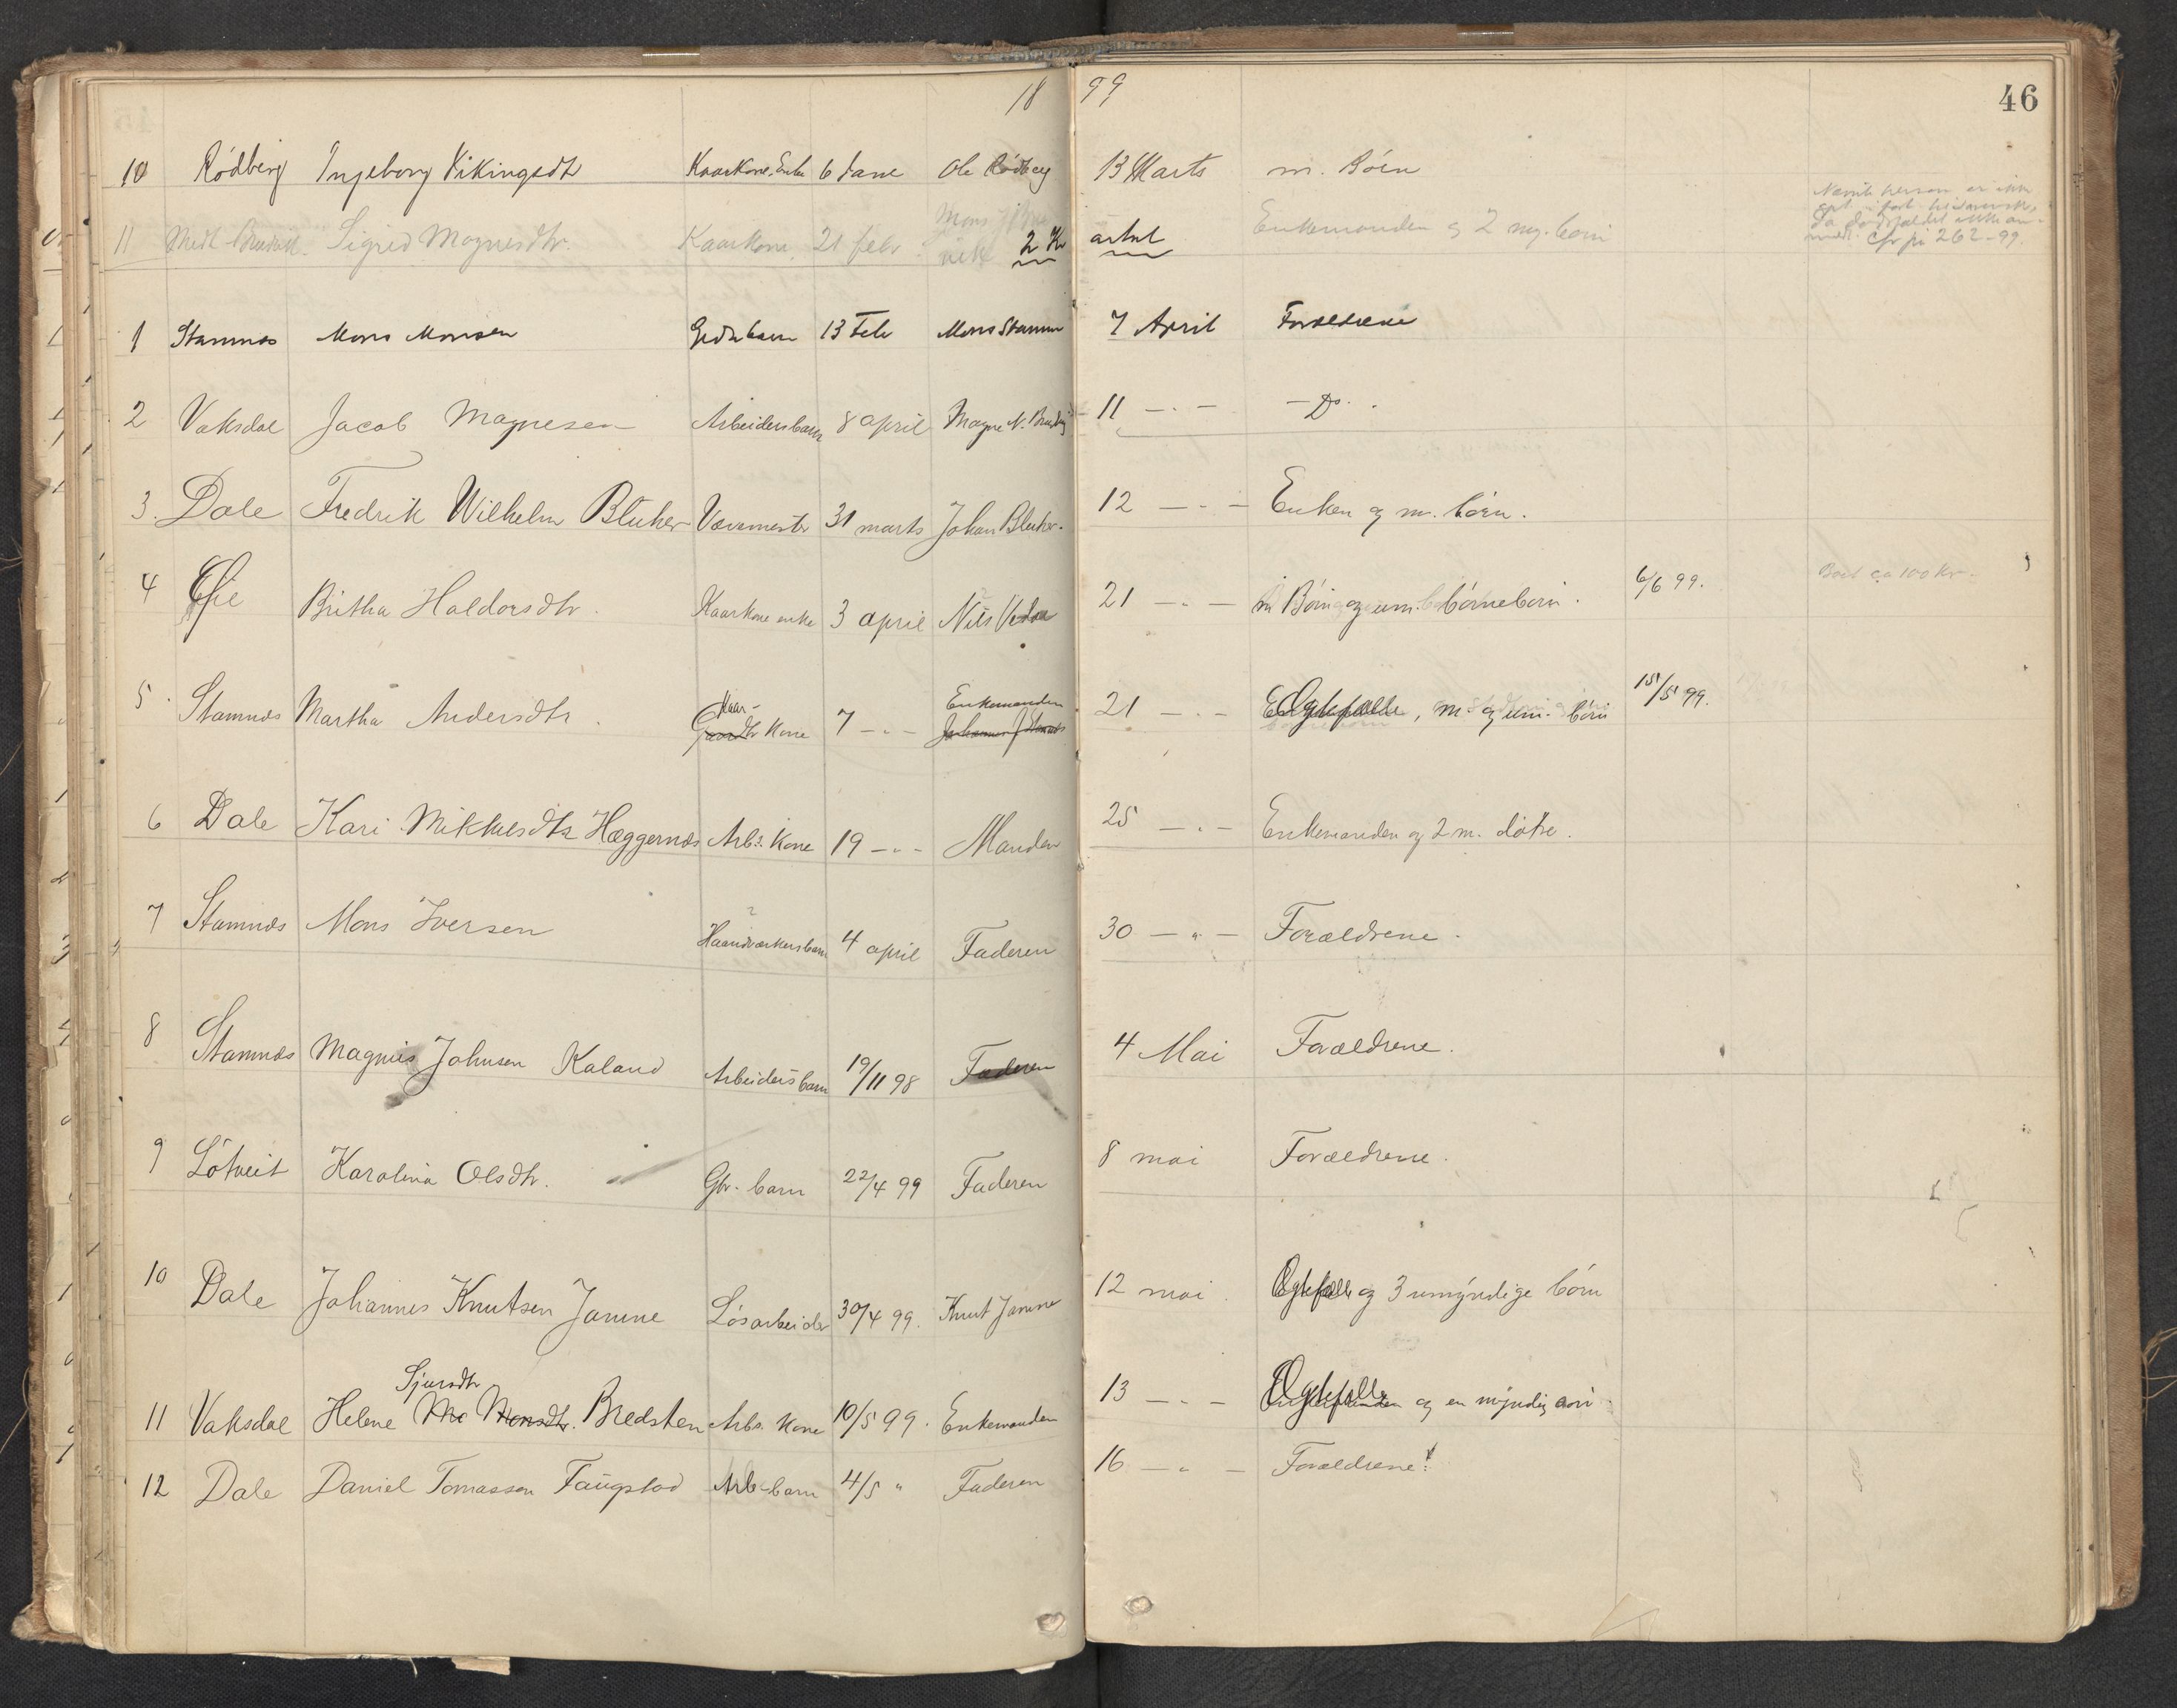 1899
46
10 Rødberg Ingeborg Vikingsdtr Kaarkone, Enke 6 Janr Ole Rødberg 13 Marts m. Børn
11 Sigrid Magnesdtr. Kaarkone. 21 febr. Mons Enkemanden og 2 myn. børn
2 Kv artal
cfr pr 262-99.
1 Stamnæs Mons Monsen Grdbr barn 13 Feb Mons Stamn 7 April Forældrene
2 Vaksdal Jacob Magnesen Arbeidersbarn 8 april Magne N. 11 — " — — Do. .
3. Dale Fredrik Wilhelm Bluher Vævemester 31 marts Johan Bluher. 12 — " — Enken og m. børn.
4 Britha Haldorsdtr. Kaarkone enke 3 april Nils 21 — " — m Børn og um. børnebørn. 6/6 99. Boet ca 100 Kr.
5 Stamnæs Martha Andersdtr. Kaar- Kone 7 — " — Enkemanden Johannes J Stamnæs 21 — " — Egtefælle, m og um. børn 15/5 99.
6 Dale Kari Mikkelsdtr Hæggernæs Arb.s Kone 19 — " — Manden 25 — " — Enkemanden og 2 m. døtre.
7 Stamnæs Mons Iversen Haandværkersbarn 4 april Faderen 30 — " — Forældrene.
8 Stamnæs Magnus Johnsen Kaland Arbeidersbarn 19/11 98 Faderen 4 Mai Forældrene.
9 Løtveit Karolina Olsdtr. Gbr. barn 22/4 99 Faderen 8 mai Forældrene.
10 Dale Johannes Knutsen Jamne Løsarbeider 30/4 99. Knut Jamne 12 mai. Egtefælle og 3 umyndige børn
Sjursdtr
11 Vaksdal Helene Mo Monsdtr. Bredsten Arbs. Kone 10/5 99. Enkemanden 13 — " — Egtefælle og en myndig søn.
12 Dale Daniel Tomassen Faugstad Arb-barn 4/5 " Faderen 16 — " — Forældrene.